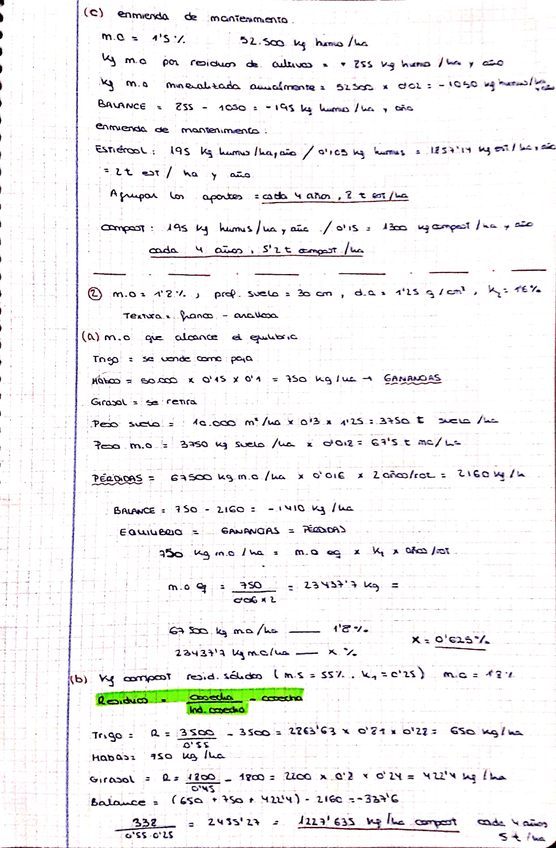 (c) enmienda de mantenimiento.
m.o = 1'5% 52.500 kg humus/ha
kg m.o por residuos de cultivos = + 855 kg humus /ha y año
kg m.o mineralizada anualmente = 52500 x 0'02 = -1050 kg humus/ha
BALANCE = 855 - 1050 = -195 kg humus/ha y año
enmienda de mantenimiento:
Estiércol: 195 kg humus/ha, año / 0'105 kg humus = 1857'14 kg est/ha, año
= 2t est / ha y año
Agrupar los aportes = cada 4 años, 8 t est/ha
compost: 195 kg humus/ha y año / 0'15 = 1300 kg compost /ha y año
cada 4 años, 5'2 t compost /ha
② m.o = 1'8%, prof. suelo = 30 cm, d.a = 1'25 g/cm³, k₂ = 1'6%
Textura = franco - arcillosa
(a) m.o que alcance el equilibrio
Trigo = se vende como paja
Habas = 50.000 x 0'15 x 0'1 = 750 kg/ha → GANANCIAS
Girasol = se retira
Peso suelo = 10.000 m²/ha x 0'3 x 1'25 = 3750 t suelo /ha
Peso m.o = 3750 kg suelo /ha x 0'018 = 67'5 t mo/ha
PÉRDIDAS = 67500 kg m.o /ha x 0'016 x 2 años/rot = 2160 kg/h
BALANCE = 750 - 2160 = -1410 kg/ha
EQUILIBRIO = GANANCIAS = PÉRDIDAS
750 kg m.o /ha = m.o eq x k₂ x años/rot
m.o eq = 750 / 0'016 x 2 = 23437'7 kg =
67500 kg mo/ha —— 1'8%
23437'7 kg mo/ha —— x % x = 0'625%
(b) kg compost resid. sólidos (m.s = 55%, k₁ = 0'25) m.o = 1'8%
Residuo = cosecha / Ind. cosecha - cosecha
Trigo = R = 3500 / 0'55 - 3500 = 2863'63 x 0'81 x 0'28 = 650 kg/ha
Habas = 750 kg /ha
Girasol = R = 1800 / 0'45 - 1800 = 2200 x 0'8 x 0'24 = 422'4 kg /ha
Balance = (650 + 750 + 422'4) - 2160 = -337'6
338 / 0'55·0'25 = 2455'27 = 1227'635 kg/ha compost cada 4 años
5 t/ha